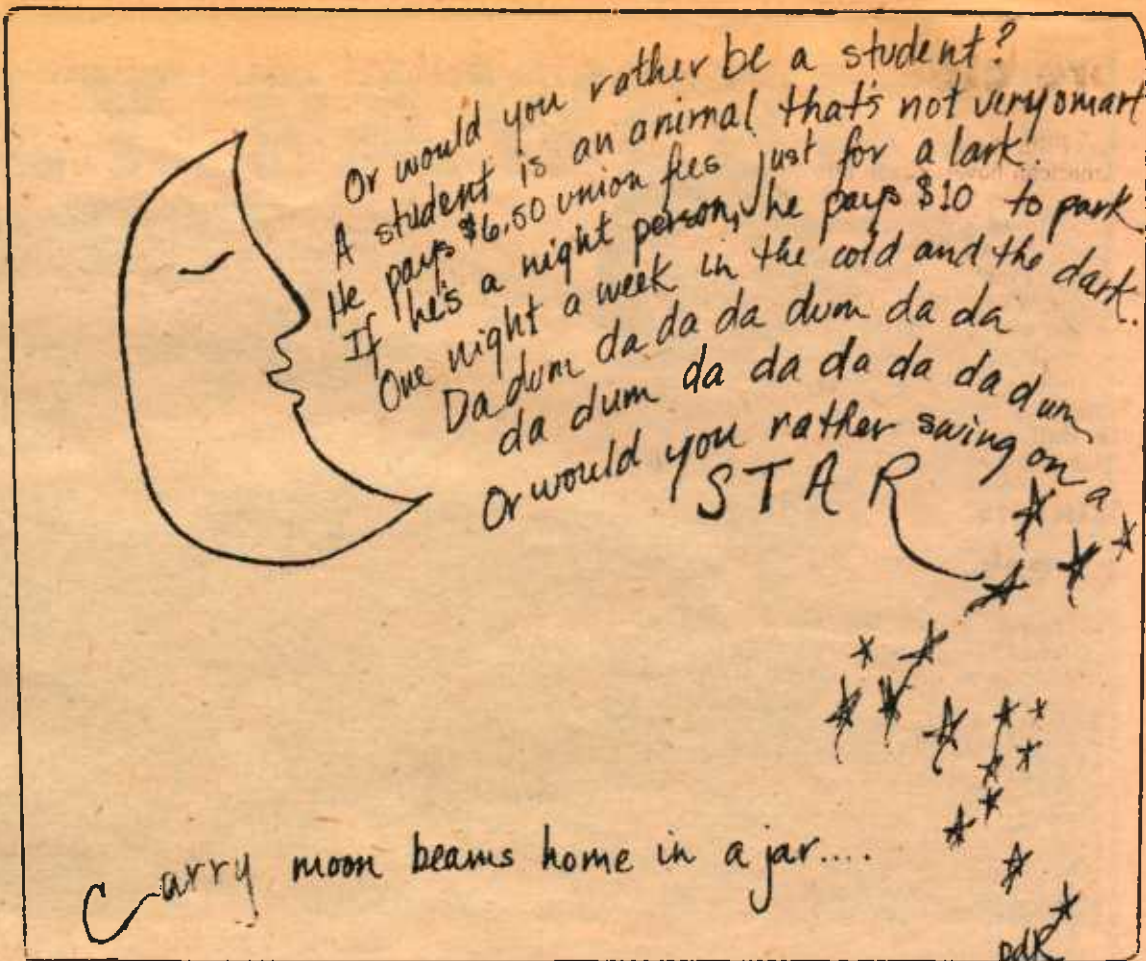 Or would you rather be a student?
A student is an animal that's not very smart
He pays $6.50 union fees just for a lark.
If he's a night person, he pays $10 to park
One night a week in the cold and the dark.
Da dum da da da dum da da
da dum da da da da da dum
Or would you rather swing on a
STAR
Carry moon beams home in a jar....
pdR